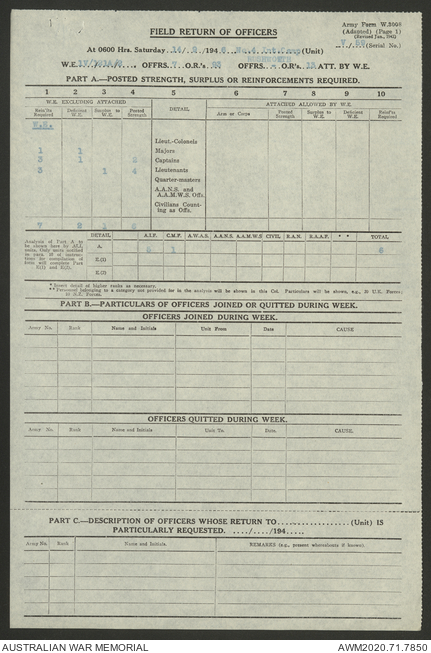 Army Form W.3008
(Adapted) (Page 1)
(Revised Jan., 1942)
FIELD RETURN OF OFFICERS
At 0600 Hrs. Saturday 14/ 2 /194 No.4 (Unit) (Serial No.)
W.E. OFFRS. 7 O.R.'s OFFRS. O.R's. ATT. BY W.E.
PART A.—POSTED STRENGTH, SURPLUS OR REINFORCEMENTS REQUIRED.
1 2 3 4 5 6 7 8 9 10
W.E. EXCLUDING ATTACHED DETAIL ATTACHED ALLOWED BY W.E.
Reinf'ts Required Deficient W.E. Surplus to W.E. Posted Strength Arm or Corps Posted Strength Surplus to W.E. Deficient W.E. Reinf's Required
Lieut.-Colonels
1 1 Majors
3 1 2 Captains
3 1 4 Lieutenants
Quarter-masters
A.A.N.S. and
A.A.M.W.S. Offs.
Civilians Count-
ing as Offs.
7 2
Analysis of Part A to be shown here by ALL units. DETAIL A.I.F. C.M.F. A.W.A.S. A.A.N.S. A.A.M.W.S CIVIL R.A.N. R.A.A.F. * * TOTAL
A. 1 6
E.(1)
E.(2)
* Insert detail of higher ranks as necessary.
** Personnel belonging to a category not provided for in the analysis will be shown in this Col. Particulars will be shown, e.g., 20 U.K. Forces;
PART B.—PARTICULARS OF OFFICERS JOINED OR QUITTED DURING WEEK.
OFFICERS JOINED DURING WEEK.
Army No. Rank Name and Initials Unit From Date CAUSE
OFFICERS QUITTED DURING WEEK.
Army No. Rank Name and Initials Unit To. Date. CAUSE.
PART C.—DESCRIPTION OF OFFICERS WHOSE RETURN TO.................... (Unit) IS
PARTICULARLY REQUESTED. ..../..../194.....
Army No. Rank Name and Initials. REMARKS (e.g., present whereabouts if known).
AUSTRALIAN WAR MEMORIAL AWM2020.71.7850